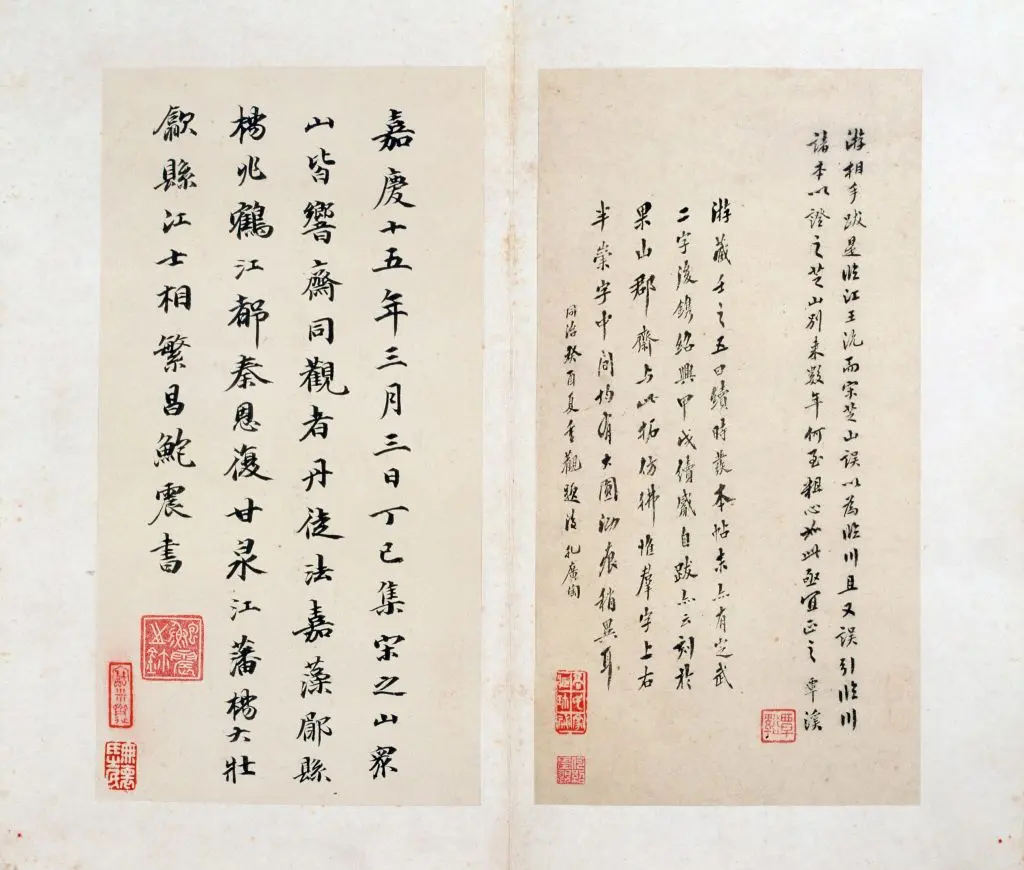 游相手跋是臨江王沇而宋芝山誤以為臨川且又誤引臨川
諸本以證之芝山別來數年何至粗心如此亟宜正之 覃溪
游藏壬之五曰續時發本帖末亦有定武
二字後鐫紹興甲戌續歲自跋亦云刻於
果山郡齋與此拓彷彿惟羣字上右
半崇字中間均有大圓泐痕稍異耳
同治癸酉夏重觀題後孔廣陶
嘉慶十五年三月三日丁巳集宋之山眾
山皆響齋同觀者丹徒法嘉蓀鄖縣
楊兆鶴江都秦恩復甘泉江藩楊大壯
歙縣江士相繁昌鮑震書
覃谿